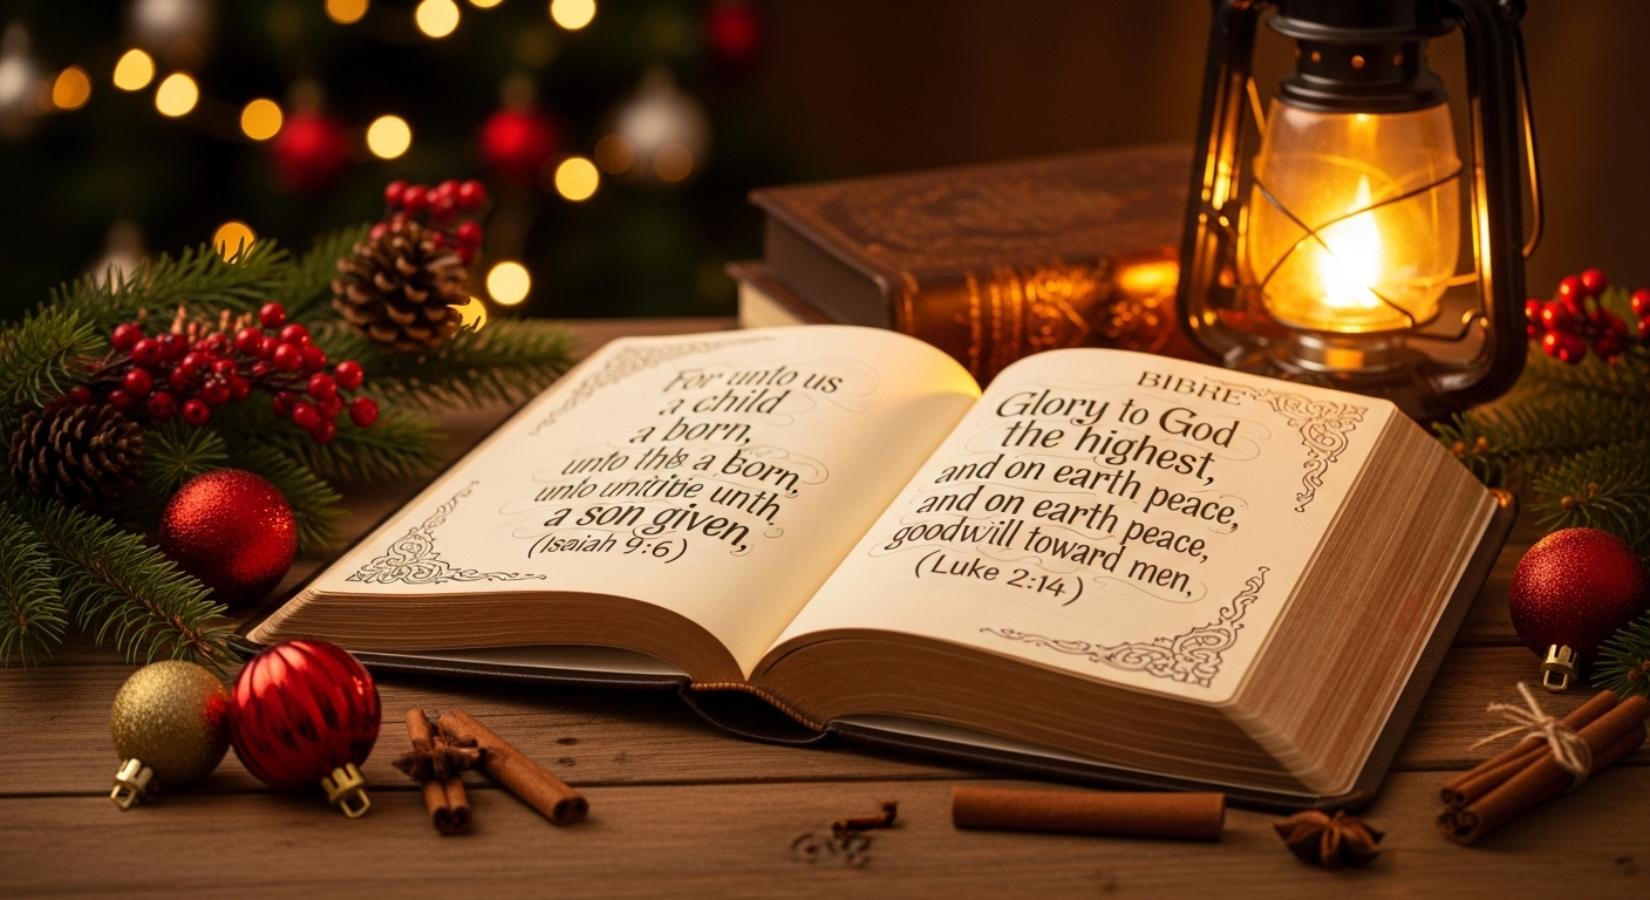 For unto us
a child
a born,
unto the a born,
unto unth,
a son given,
(Isaiah 9:6)
BIBRE
Glory to God
the highest,
and on earth peace,
and on earth peace,
goodwill toward men,
(Luke 2:14)